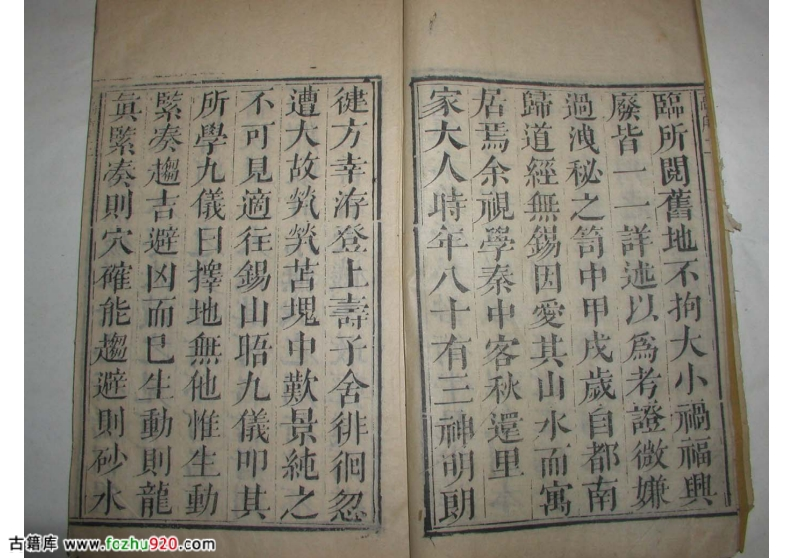 臨所閱舊地不拘大小禍福興
廢皆一一詳述以爲考證微嫌
過洩秘之笥中甲戌歲自都南
歸道經無錫因愛其山水而寓
居焉余視學秦中客秋還里
家大人時年八十有三神明朗
健方幸洊登上壽子舍徘徊忽
遭大故煢煢苫塊中歎景純之
不可見適往錫山晤九儀叩其
所學九儀曰擇地無他惟生動
緊凑趨吉避凶而已生動則龍
眞緊凑則穴確能趨避則砂水
古籍库 www.fczhu920.com